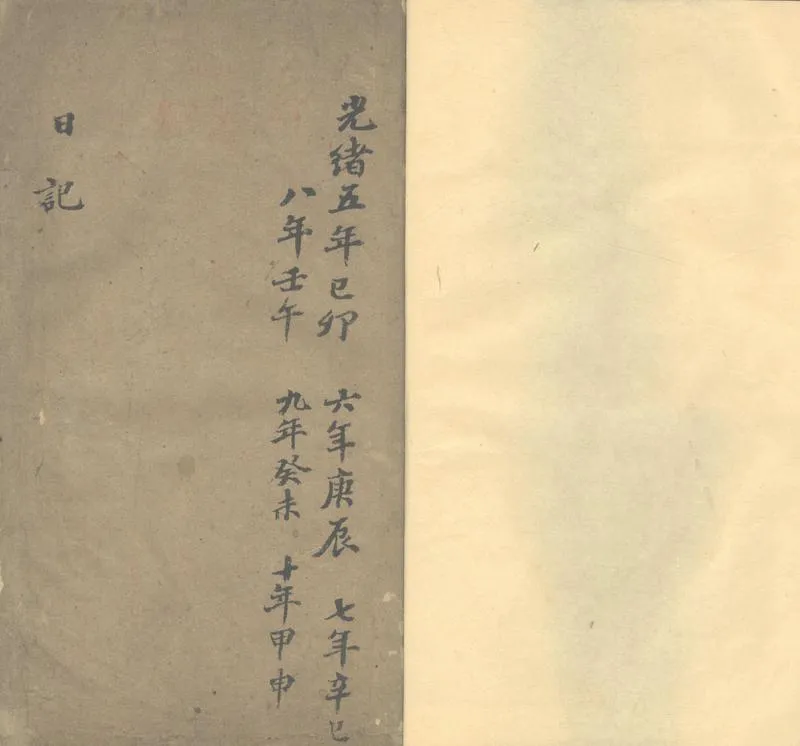 光緒五年己卯 六年庚辰 七年辛巳
八年壬午 九年癸未 十年甲申
日記